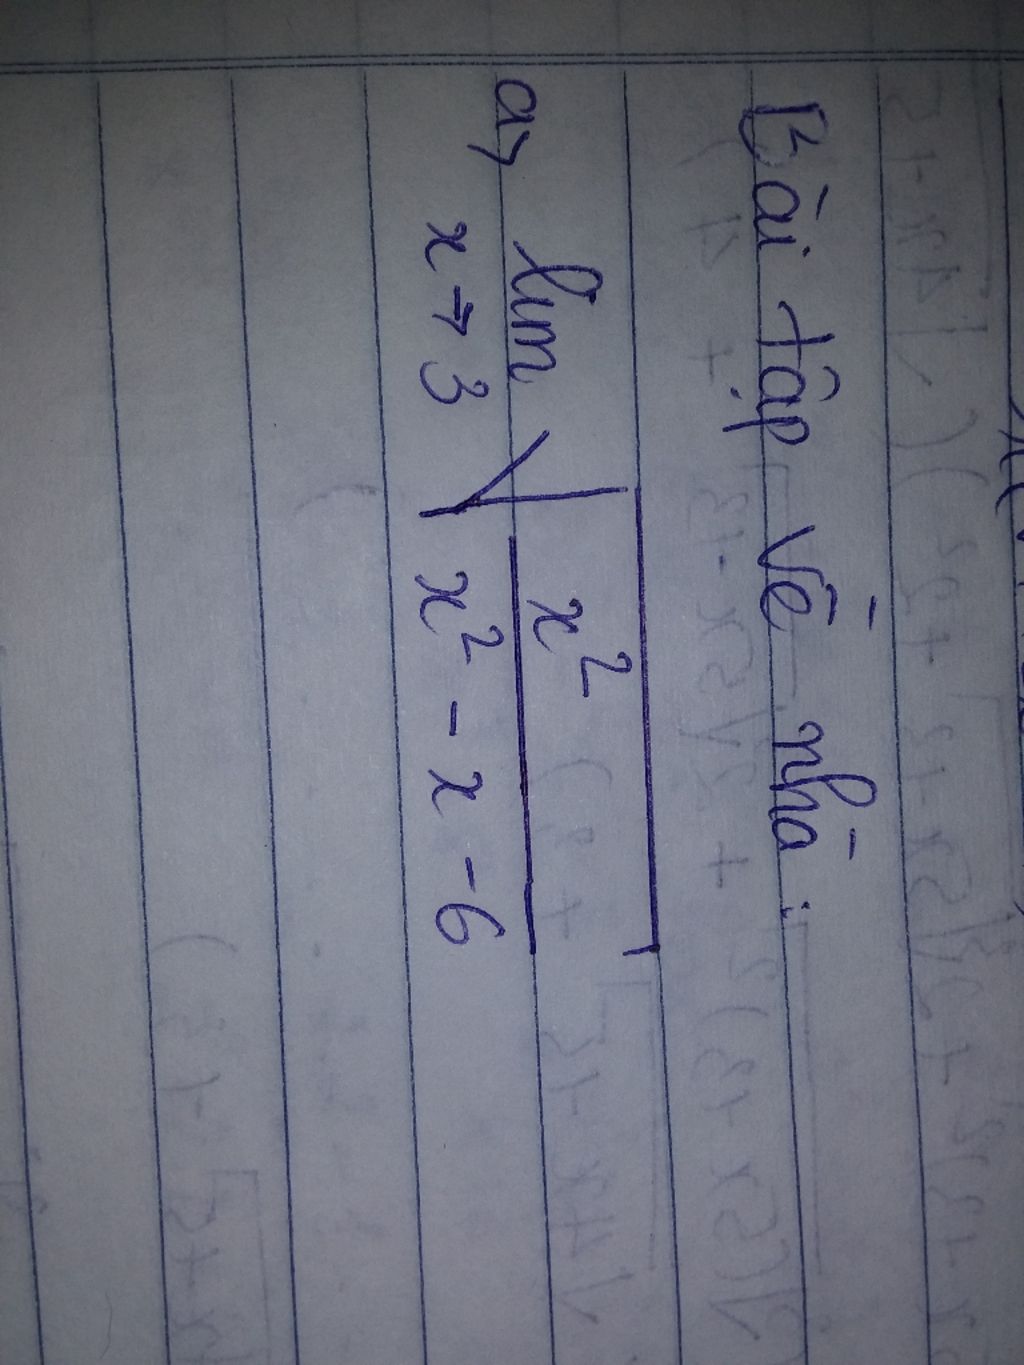 Bài tập về nhà :
a, lim √(x² / (x² - x - 6))
x → 3